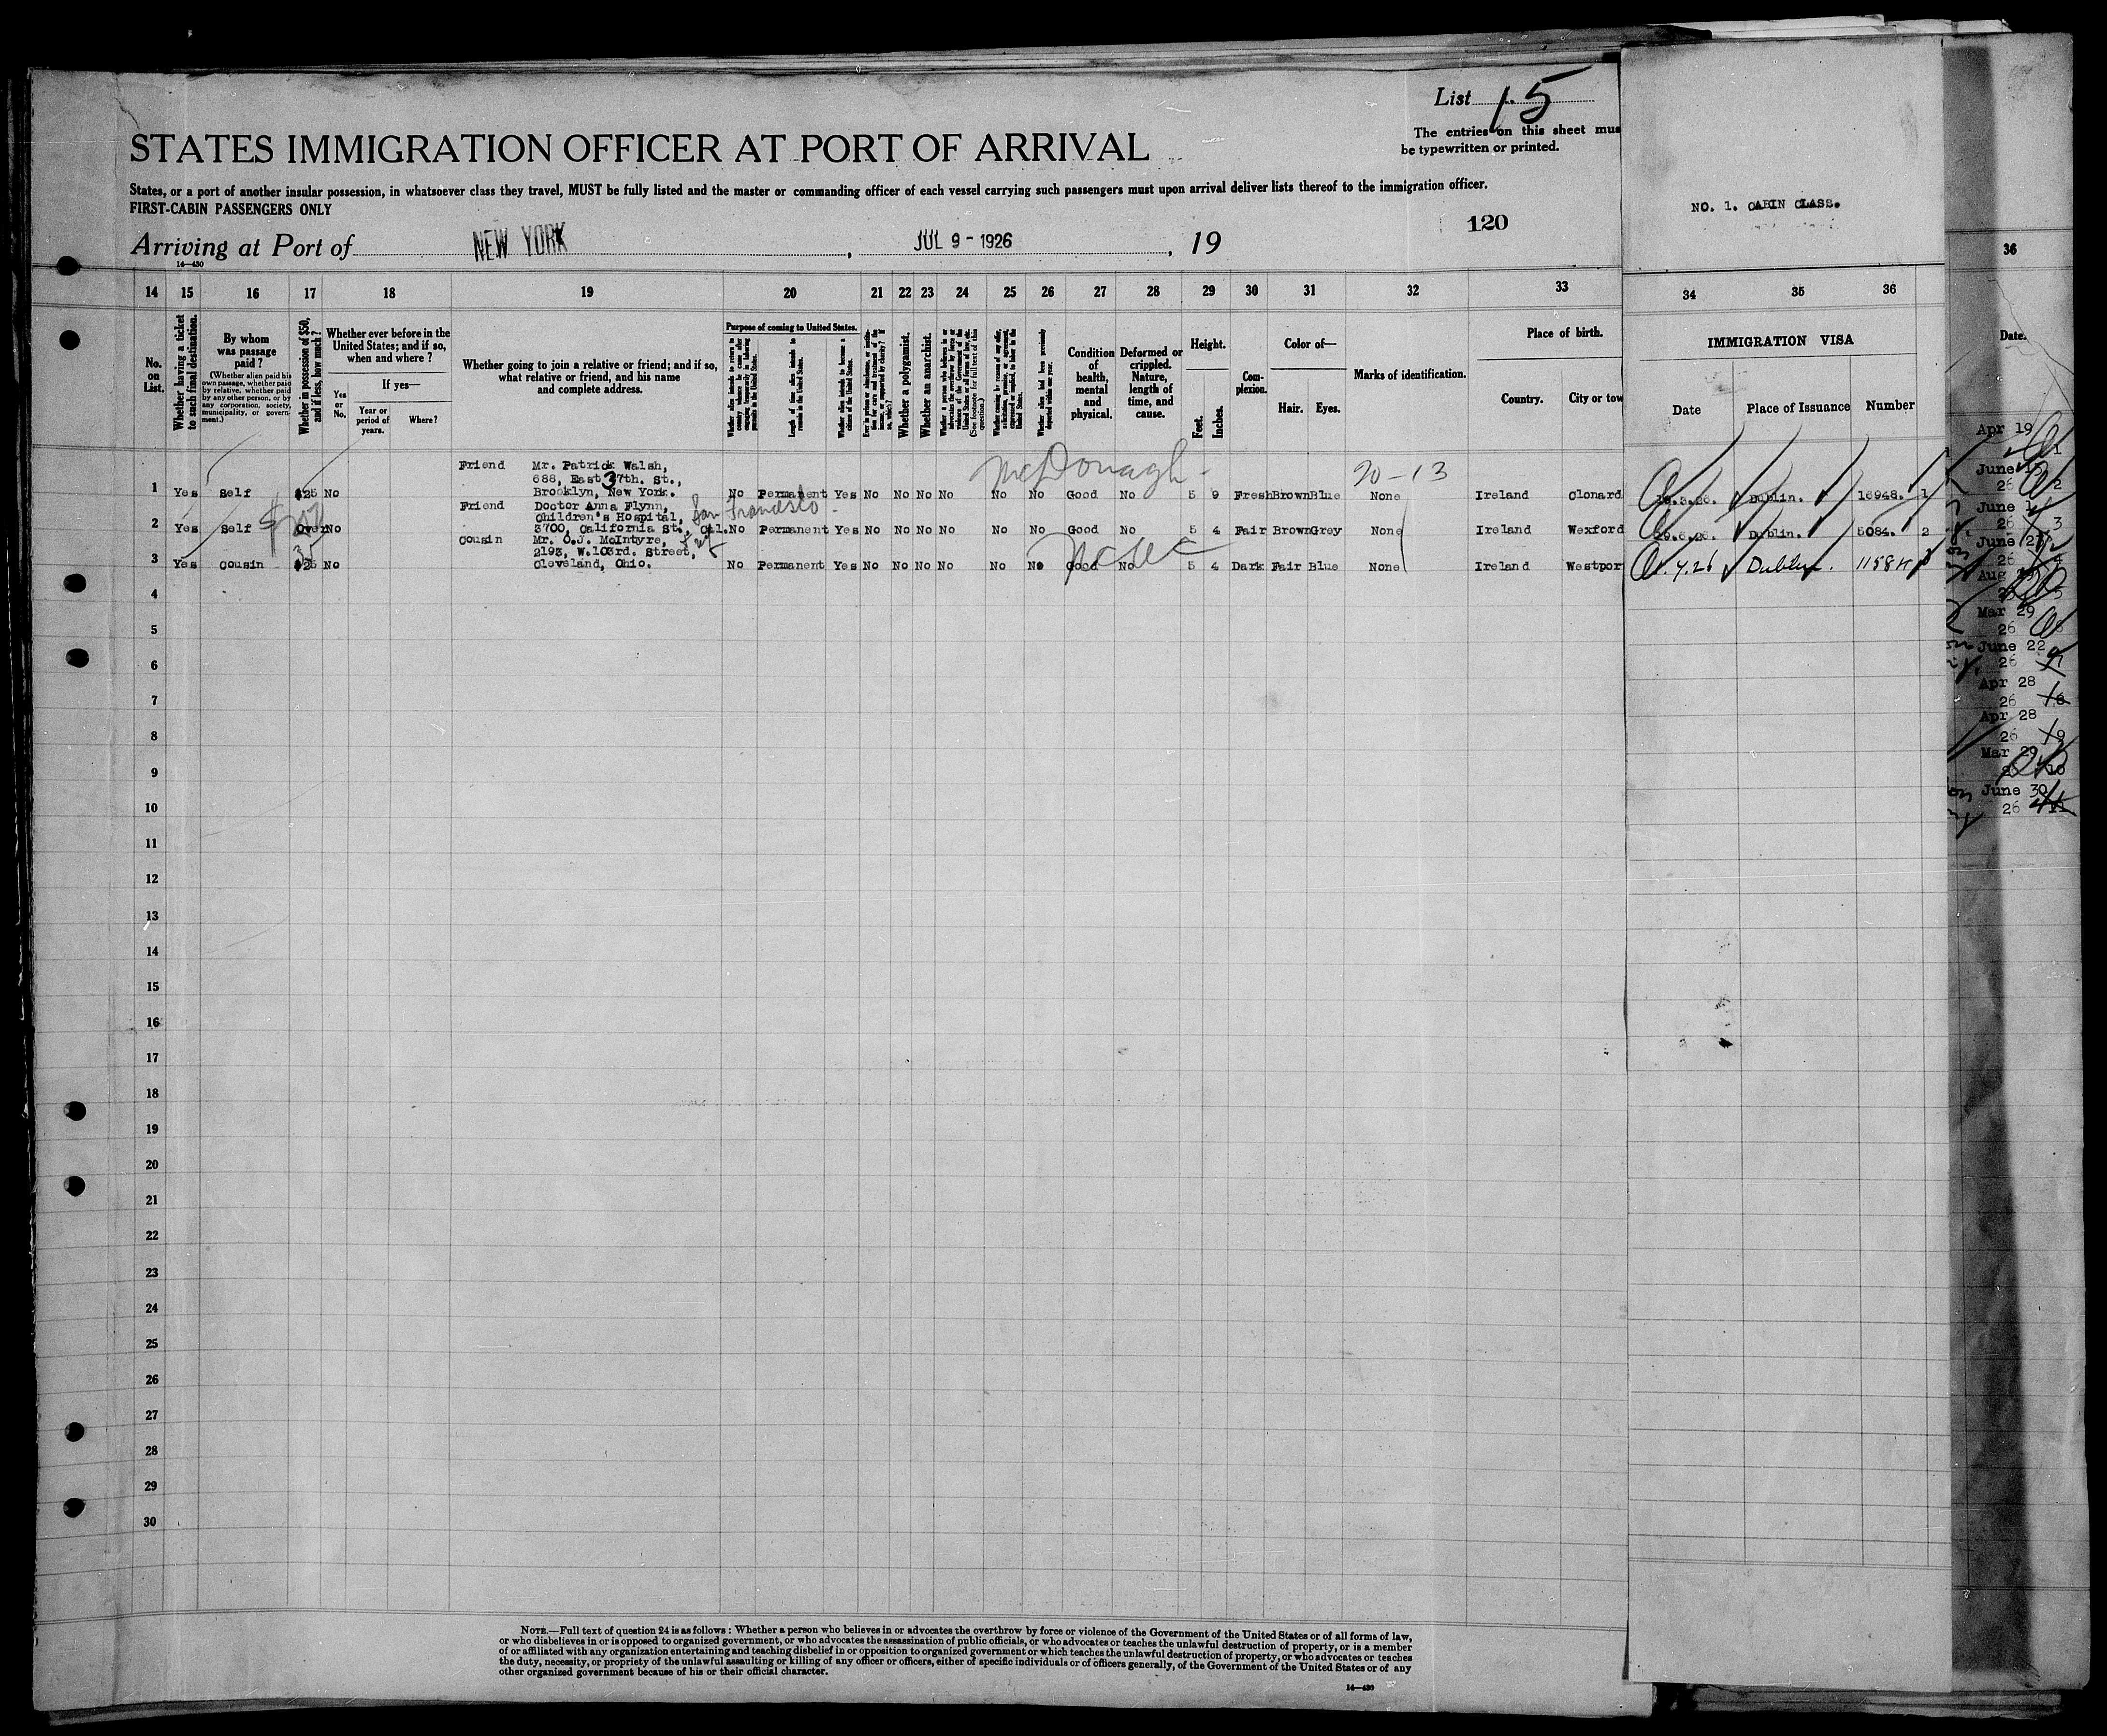 List 15
The entries on this sheet mus
be typewritten or printed.
STATES IMMIGRATION OFFICER AT PORT OF ARRIVAL
States, or a port of another insular possession, in whatsoever class they travel, MUST be fully listed and the master or commanding officer of each vessel carrying such passengers must upon arrival deliver lists thereof to the immigration officer.
FIRST-CABIN PASSENGERS ONLY
NO. 1. CABIN CLASS.
120
Arriving at Port of NEW YORK, JUL 9 - 1926, 19
14-430
36
14 15 16 17 18 19 20 21 22 23 24 25 26 27 28 29 30 31 32 33 34 35 36
No. on List.
Whether having a ticket to such final destination.
By whom was passage paid?
(Whether alien paid his own passage, whether paid by relative, whether paid by any other person, or by any corporation, society, municipality, or government.)
Whether in possession of $50, and if less, how much?
Whether ever before in the United States; and if so, when and where?
Yes or No.
If yes—
Year or period of years.
Where?
Whether going to join a relative or friend; and if so, what relative or friend, and his name and complete address.
Purpose of coming to United States.
Length of time alien intends to remain in the United States.
Whether alien intends to become a citizen of the United States.
Whether a polygamist.
Whether an anarchist.
Condition of health, mental and physical.
Deformed or crippled. Nature, length of time, and cause.
Height.
Feet.
Inches.
Complexion.
Color of—
Hair. Eyes.
Marks of identification.
Place of birth.
Country. City or tow
IMMIGRATION VISA
Date Place of Issuance Number
Date.
McDonagh -
20-13
Friend Mr. Patrick Walsh,
688, East 37th. St.,
1 Yes Self $25 No Brooklyn, New York. No Permanent Yes No No No No No No Good No 5 9 Fresh Brown Blue None Ireland Clonard Dublin. 16948. 1
Friend Doctor Anna Flynn,
Children's Hospital, San Francisco -
2 Yes Self Over No 3700, California St., Cal. No Permanent Yes No No No No No No Good No 5 4 Fair Brown Grey None Ireland Wexford Dublin. 5084. 2
Cousin Mr. O.J. McIntyre,
2193, W.103rd. Street,
3 Yes Cousin $25 No Cleveland, Ohio. No Permanent Yes No No No No No No Good No 5 4 Dark Fair Blue None Ireland Westpor Dublin. 3
4
5
6
7
8
9
10
11
12
13
14
15
16
17
18
19
20
21
22
23
24
25
26
27
28
29
30
Apr 19
1
June 15
26 2
June 1
26 3
June 23
26 4
Aug
5
Mar 29
26
June 22
26
Apr 28
26 8
Apr 28
26 9
Mar 29
10
June 30
26
NOTE.—Full text of question 24 is as follows: Whether a person who believes in or advocates the overthrow by force or violence of the Government of the United States or of all forms of law,
or who disbelieves in or is opposed to organized government, or who advocates the assassination of public officials, or who advocates or teaches the unlawful destruction of property, or is a member
of or affiliated with any organization entertaining and teaching disbelief in or opposition to organized government or which teaches the unlawful destruction of property, or who advocates or teaches
the duty, necessity, or propriety of the unlawful assaulting or killing of any officer or officers, either of specific individuals or of officers generally, of the Government of the United States or of any
other organized government because of his or their official character.
14-430